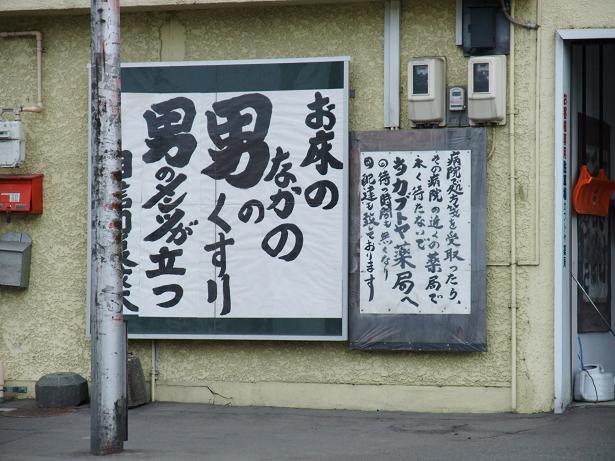 お床の
なかの
男のくすり
男のメンツが立つ
病院が処方箋を受取ったら、
その病院の近くの薬局で
永く待たないで
当カブトヤ薬局へ
◎待時間も無くなり
◎配達も致しております